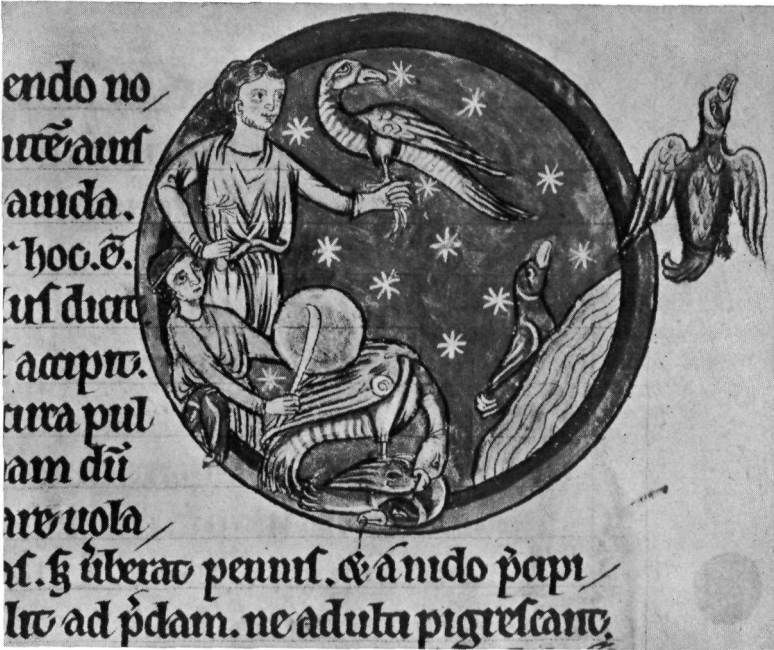 endo no/
utē auis
auida.
r hoc. ē.
lus dicit
accipit.
circa pul
am dū
are uola/
as. sꝫ ūberat pennis. & a nido p̄cipi/
lit ad p̄dam. ne adulti pigrescant.